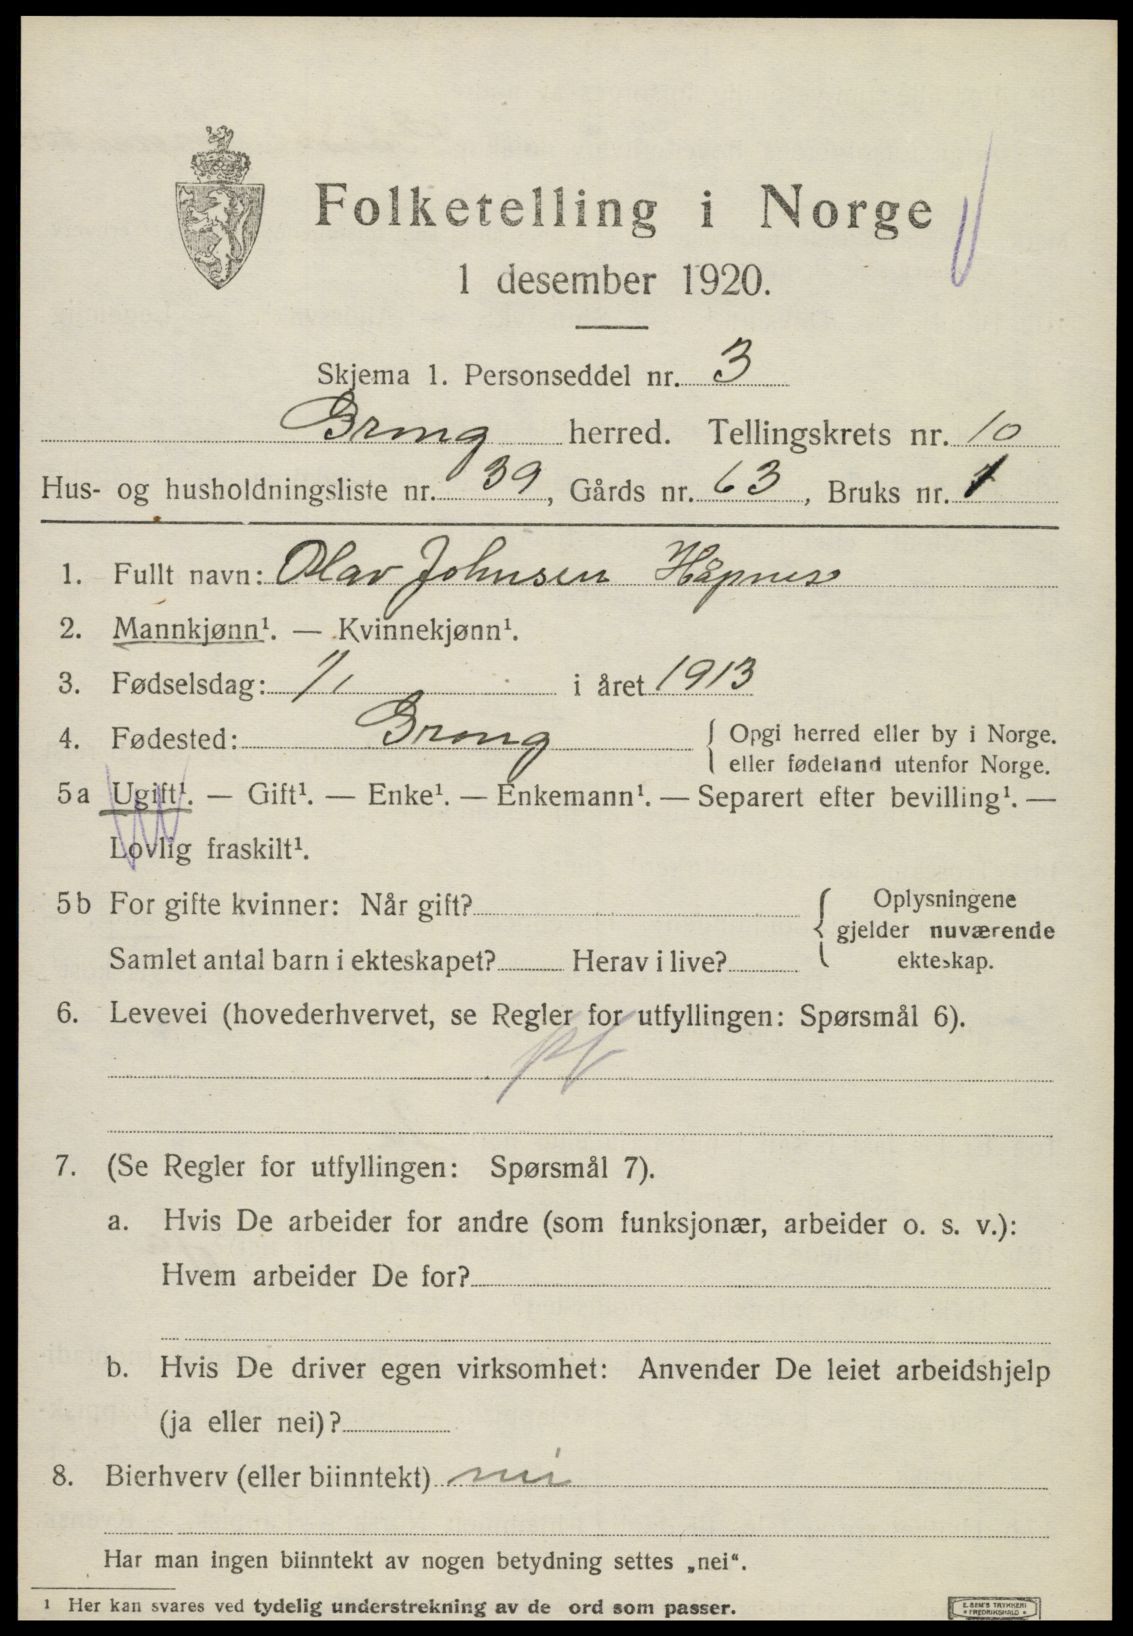 Folketelling i Norge
1 desember 1920.
Skjema 1. Personseddel nr. 3
Grong herred. Tellingskrets nr. 10
Hus- og husholdningsliste nr. 39, Gårds nr. 63, Bruks nr. 1
1. Fullt navn: Olav Johnsen Håpnes
2. Mannkjønn¹. — Kvinnekjønn¹.
3. Fødselsdag: 1/1 i året 1913
4. Fødested: Grong { Opgi herred eller by i Norge.
eller fødeland utenfor Norge.
5a Ugift¹. — Gift¹. — Enke¹. — Enkemann¹. — Separert efter bevilling¹. —
Lovlig fraskilt¹.
5b For gifte kvinner: Når gift? { Oplysningene
gjelder nuværende
Samlet antal barn i ekteskapet? Herav i live? ekteskap.
6. Levevei (hovederhvervet, se Regler for utfyllingen: Spørsmål 6).
pf
7. (Se Regler for utfyllingen: Spørsmål 7).
a. Hvis De arbeider for andre (som funksjonær, arbeider o. s. v.):
Hvem arbeider De for?
b. Hvis De driver egen virksomhet: Anvender De leiet arbeidshjelp
(ja eller nei)?
8. Bierhverv (eller biinntekt) nei
Har man ingen biinntekt av nogen betydning settes „nei“.
¹ Her kan svares ved tydelig understrekning av de ord som passer.
E. SEM'S TRYKKERI
FREDRIKSHALD